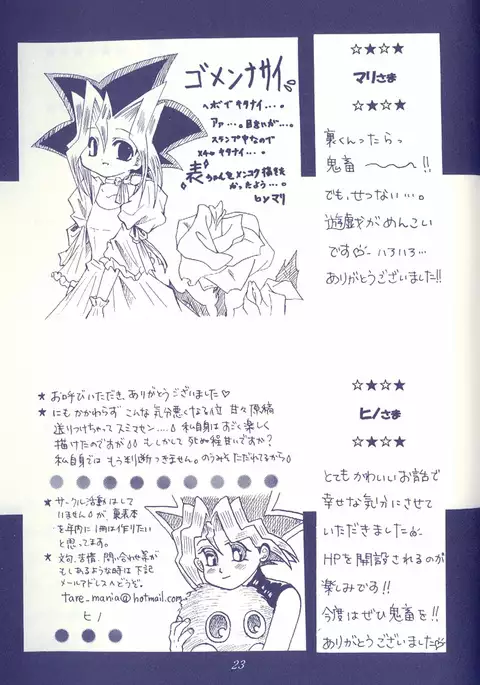 ゴメンナサイ
ヘボでキタナイ…。
アァ…。目合いが…。
スランプ中なので
メチャキタナイ…。
表ちゃんをメンコク描き
たかったよう…。
byマリ
☆★☆★
マリさま
☆★☆★
裏くんったらっ
鬼畜〜〜!!
でも、せつない…。
遊戯がめんこい
です いろいろ…
ありがとうございました!!
★ お呼びいただき、ありがとうございました♡
★ にもかかわらず こんな気分悪くなる位 甘々原稿
送りつけちゃって スミマセン…。私自身はすごく楽しく
描けたのですが もしかして死ぬ程甘いですか?
私自身では もう判断つきません。のうみそただれてるから
★ サークル活動はして
いませんが、裏表本
を年内に1冊は作りたい
と思ってます。
★ 文句、苦情、問い合わせ等が
もしあるような時は下記
メールアドレスへどうぞ。
tare_mania@hotmail.com
ヒノ
☆★☆★
ヒノさま
☆★☆★
とてもかわいいお話で
幸せな気分にさせて
いただきました
HPを開設されるのが
楽しみです!!
今度はぜひ鬼畜を!!
ありがとうございました
23